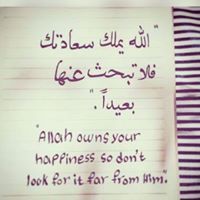 "الله يملك سعادتك
فلا تبحث عنها
بعيداً."
"Allah owns your
happiness so don't
look for it far from Him."